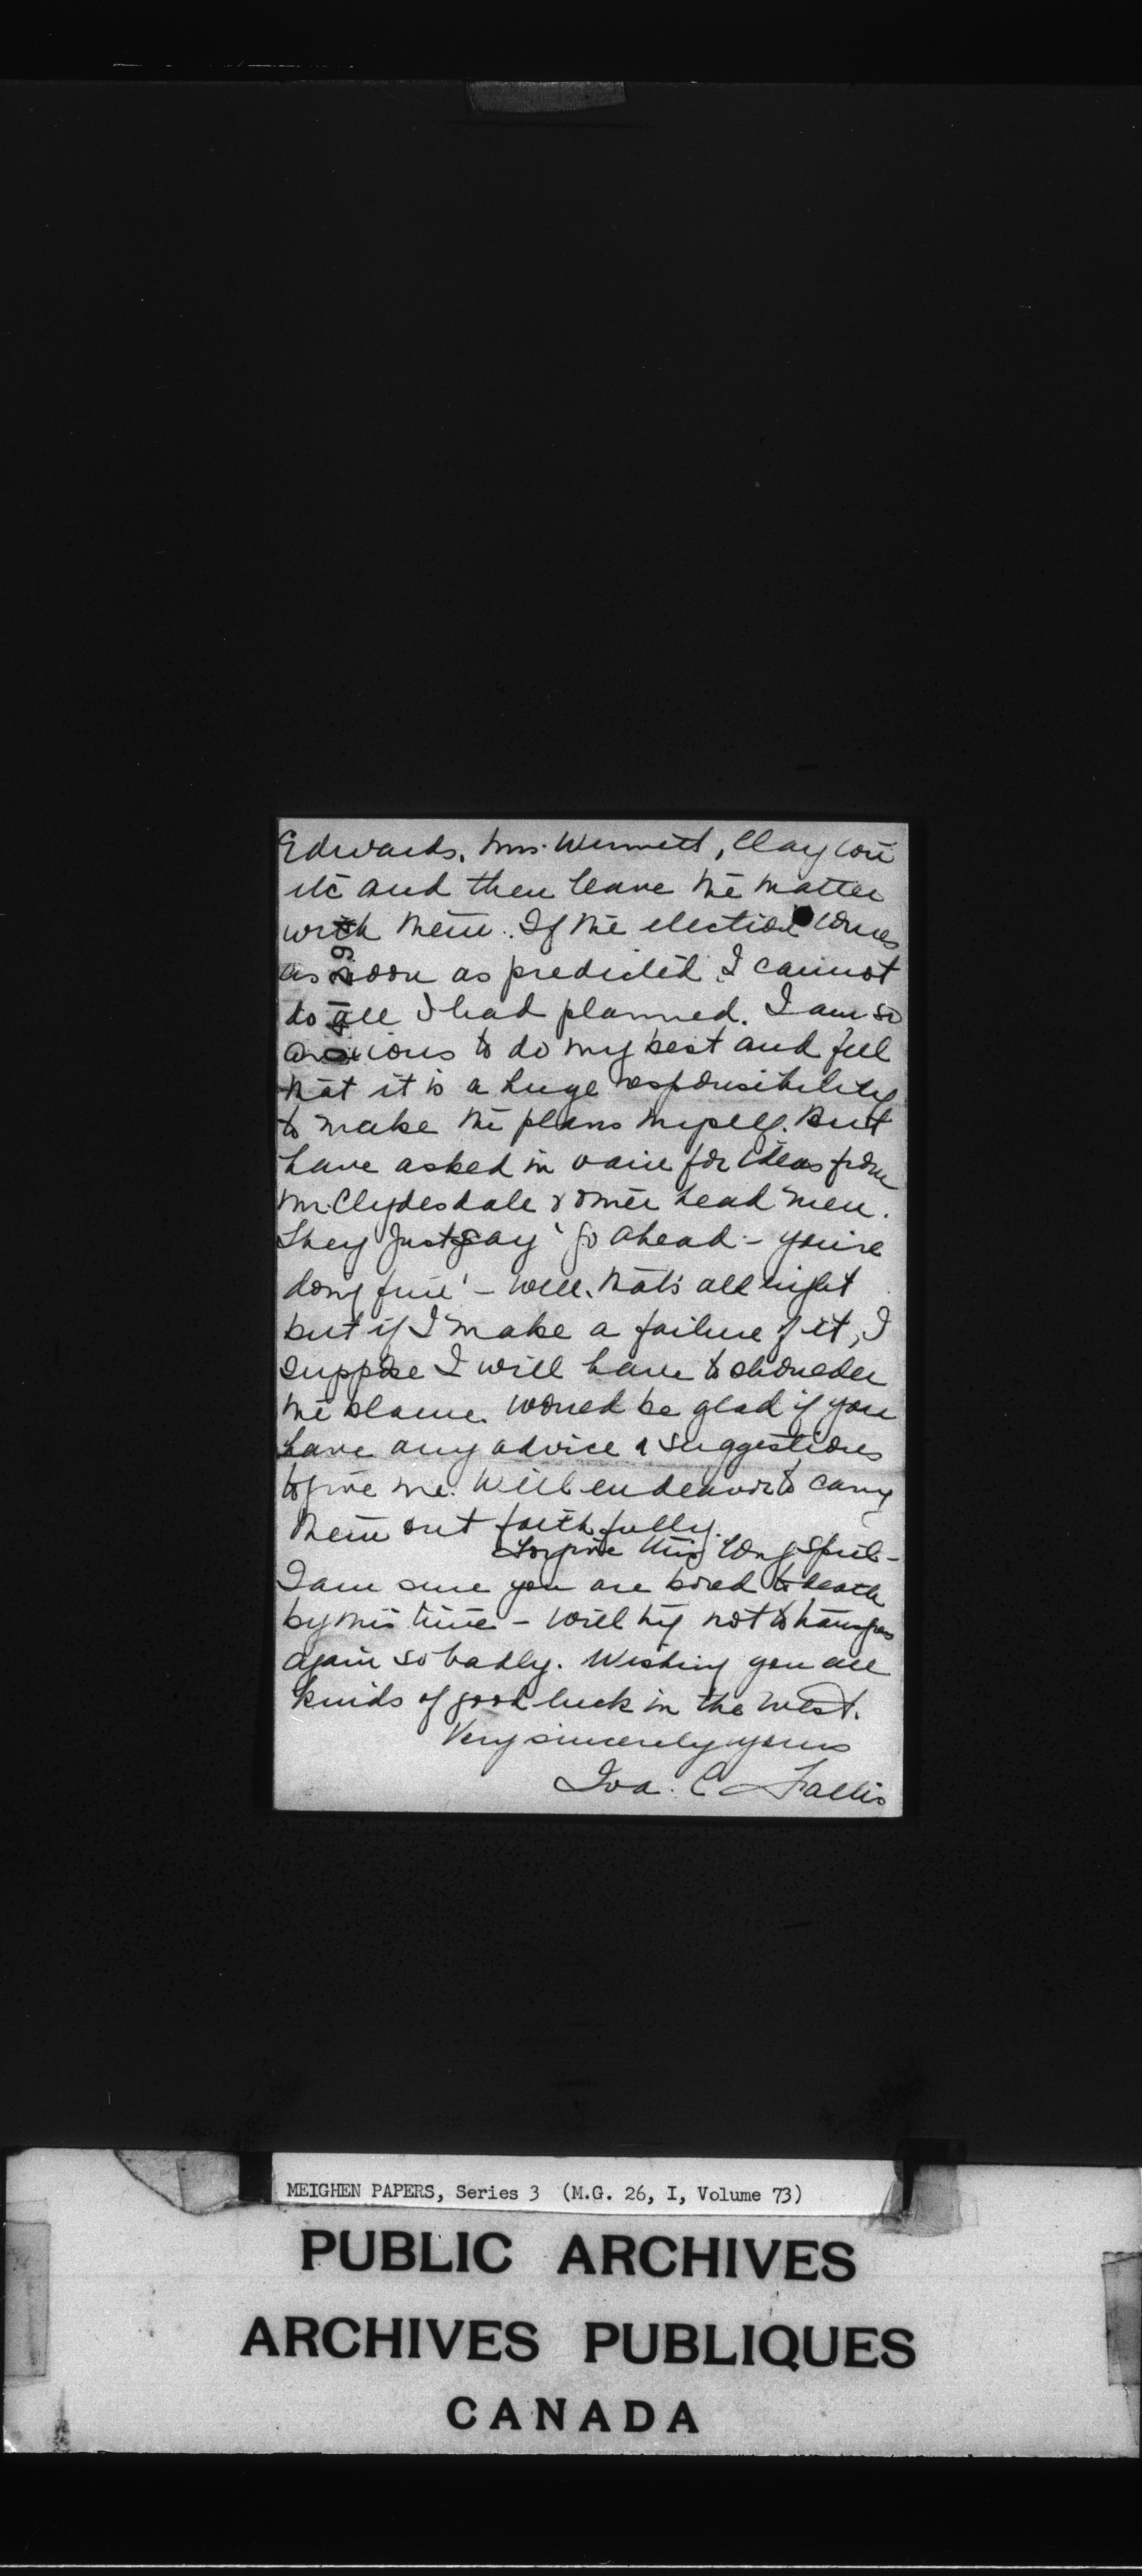 Edwards, Mrs. Winnett, Clayton
etc and then leave the matter
with them. If the election comes
as soon as predicted I cannot
do all I had planned. I am so
anxious to do my best and feel
that it is a huge responsibility
to make the plans myself. But
have asked in vain for ideas from
Mr. Clydesdale & other head men.
They just say 'go ahead - you're
doing fine' - well, that's all right
but if I make a failure of it, I
suppose I will have to shoulder
the blame. Would be glad if you
have any advice & suggestions
to give me. Will endeavor to carry
them out faithfully.
Forgive this long spiel -
I am sure you are bored to death
by this time - Will try not to transgress
again so badly. Wishing you all
kinds of good luck in the west.
Very sincerely yours
Iva. C Fallis
MEIGHEN PAPERS, Series 3 (M.G. 26, I, Volume 73)
PUBLIC ARCHIVES
ARCHIVES PUBLIQUES
CANADA